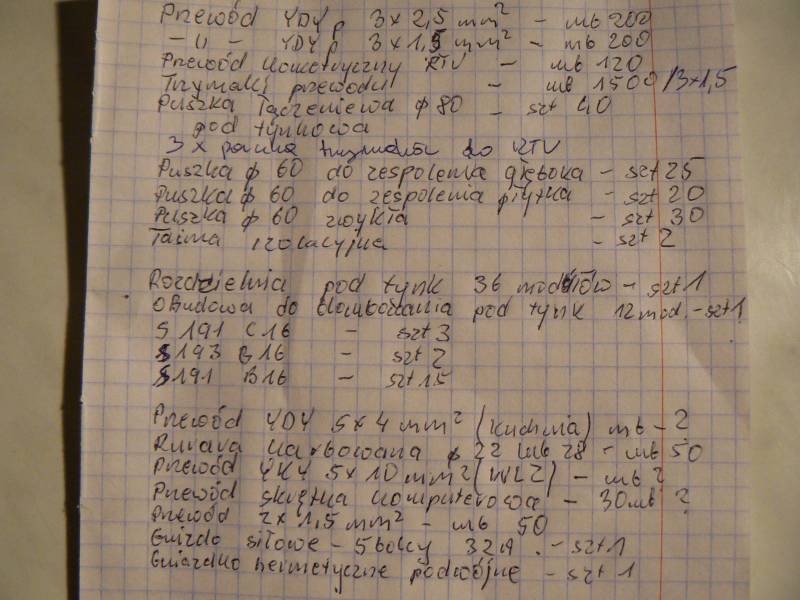 Przewód YDYp 3x2,5 mm² - mb 200
- " - YDYp 3x1,5 mm² - mb 200
Przewód koncetryczny RTV - mb 120
Trzymaki przewodu - mb 1500 /3x1,5
Puszka łączeniowa φ80 - szt 40
pod tynkowa
3 x paczka do RTV
Puszka φ 60 do zespolenia głęboka - szt 25
Puszka φ 60 do zespolenia płytka - szt 20
Puszka φ 60 zwykła - szt 30
Taśma izolacyjna - szt 2
Rozdzielnia pod tynk 36 modółów - szt 1
Obudowa do plombowania pod tynk 12 mod. - szt 1
S 191 C16 - szt 3
S 193 B16 - szt 2
S 191 B16 - szt 15
Przewód YDY 5x4 mm² (kuchnia) mb - ?
Rurava karbowana φ 22 lub 28 - mb 50
Przewód YKY 5x10 mm² (WLZ) - mb ?
Przewód skrętka komputerowa - 30mb ?
Przewód 2x1,5 mm² - mb 50
Gniazdo siłowe - 5 bolcy 32A. - szt 1
Gniazdko hermetyczne podwójne - szt 1